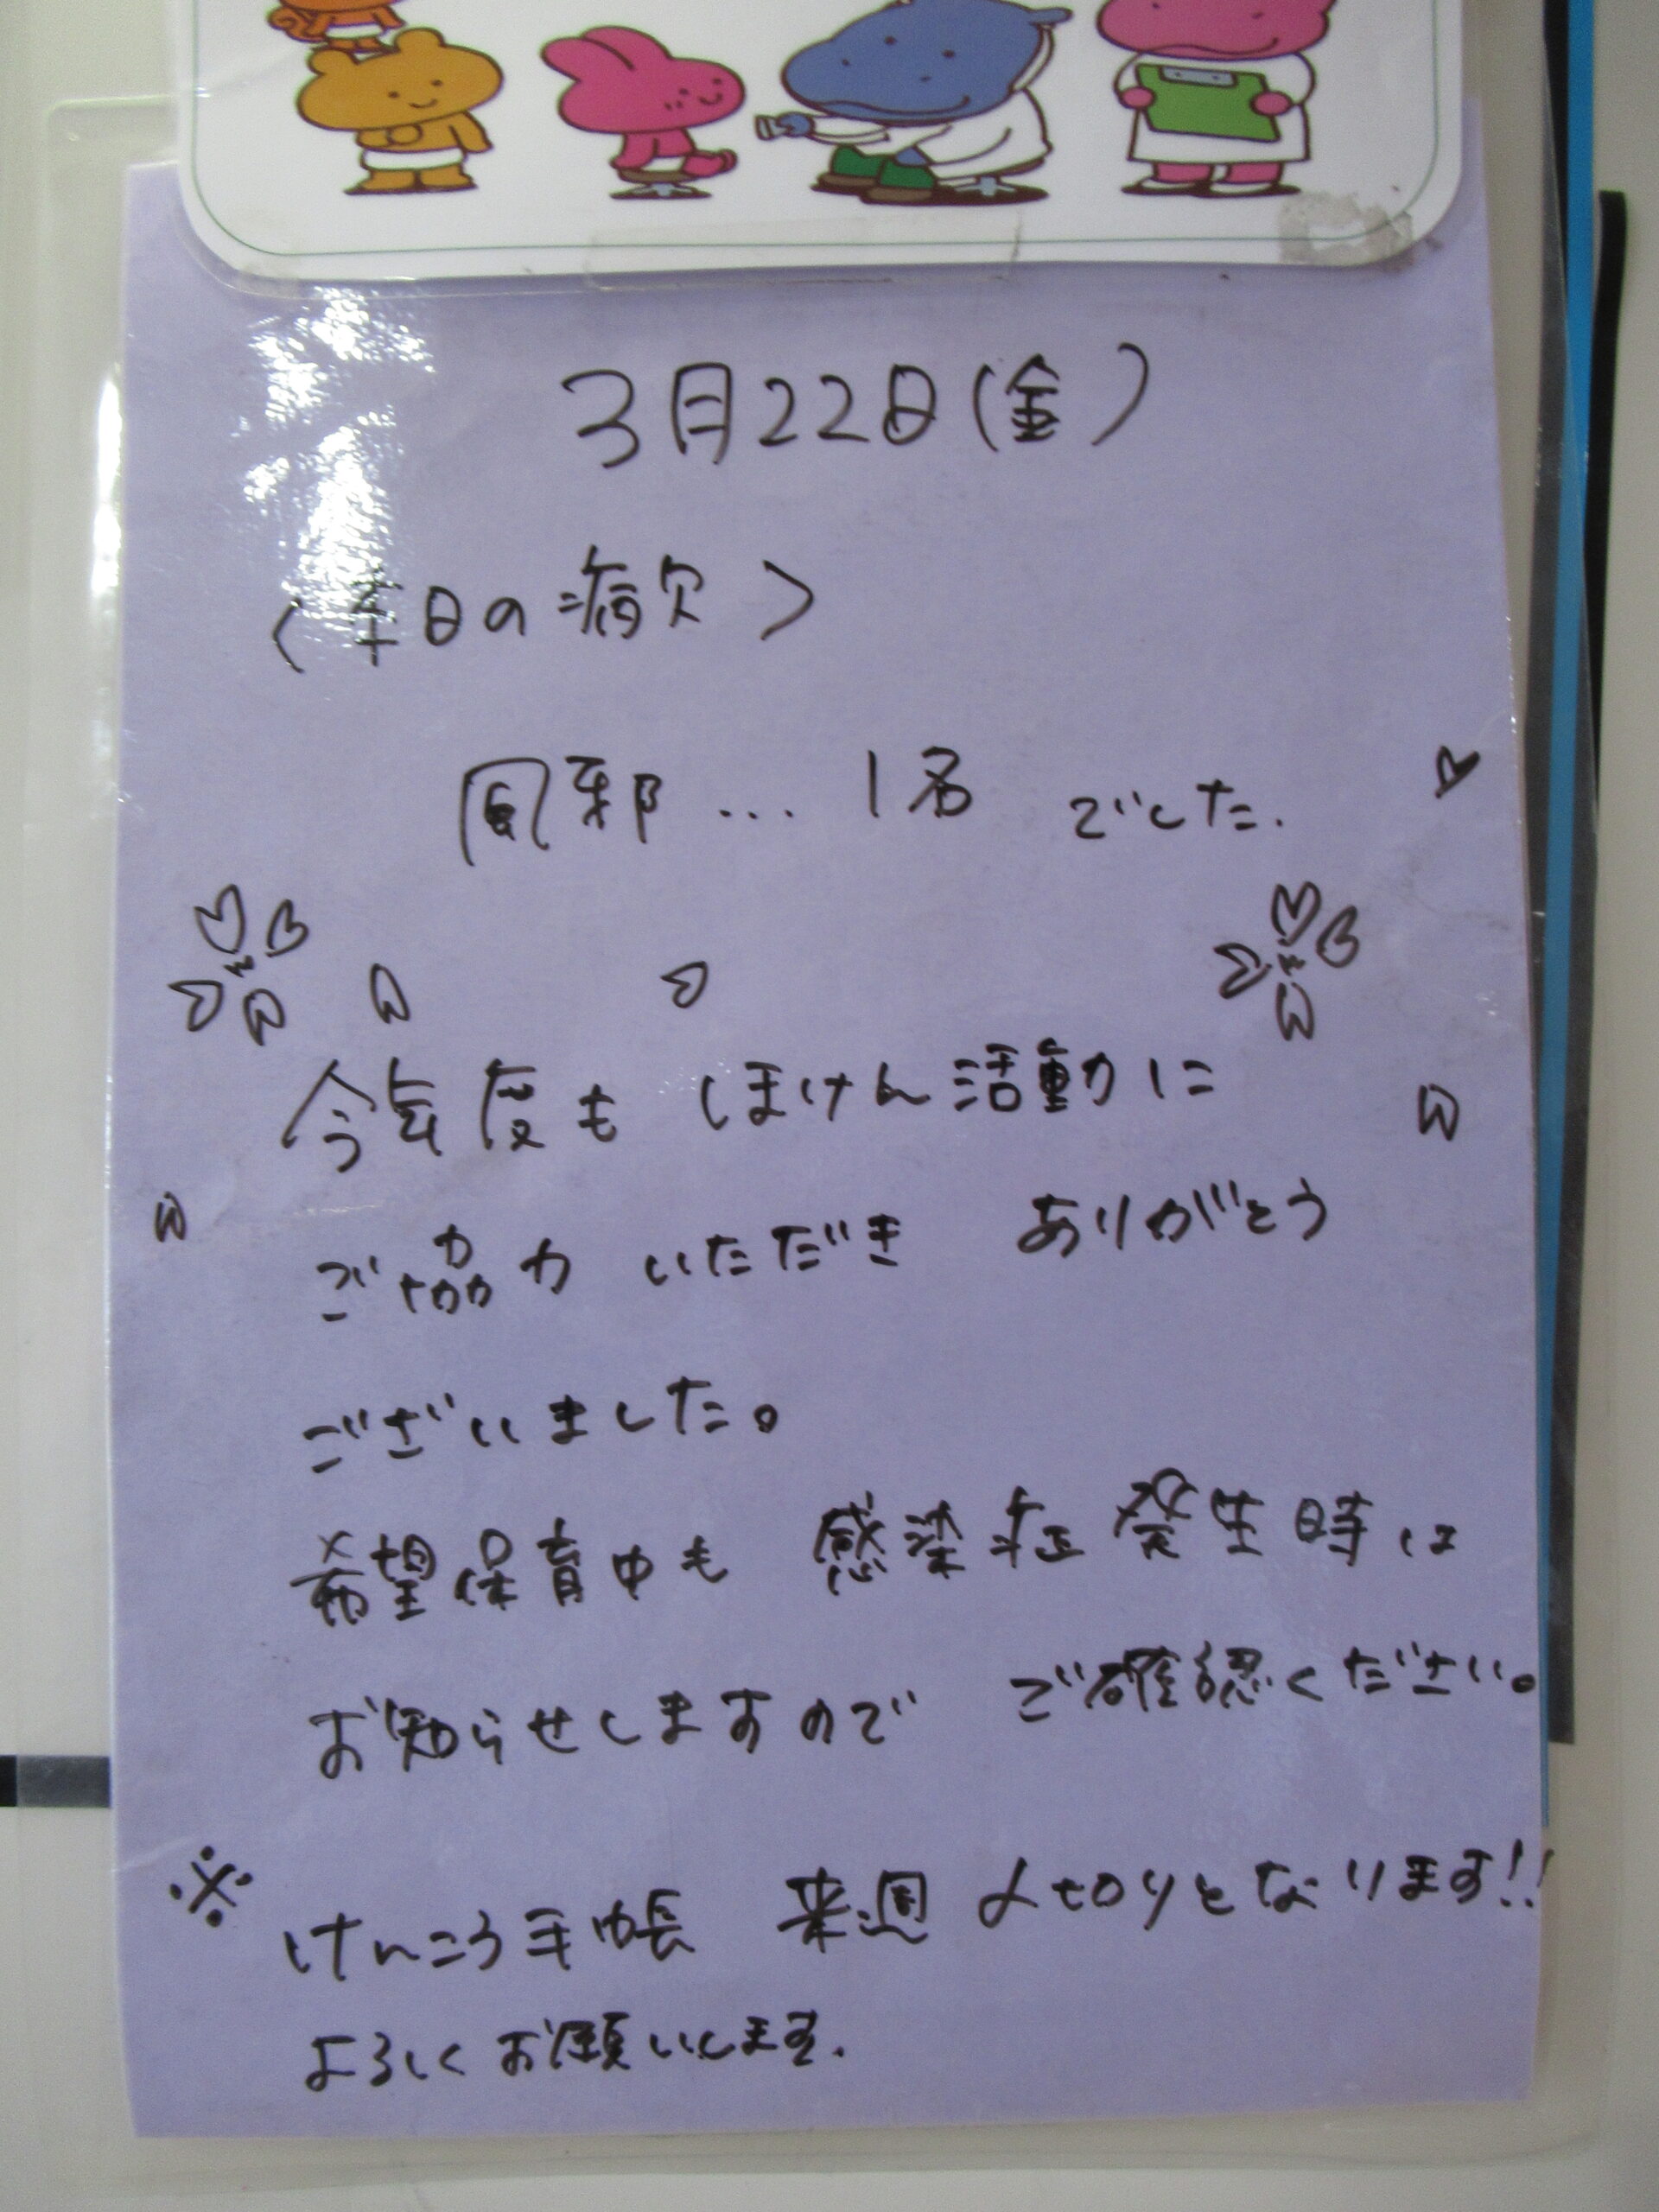 3月22日(金)
〈本日の病欠〉
風邪... 1名 でした.
今年度も ほけん活動に
ご協力 いただき ありがとう
ございました。
希望保育中も 感染症発生時は
お知らせしますので ご確認ください。
※ けんこう手帳 来週 〆切りとなります!!
よろしくお願いします.